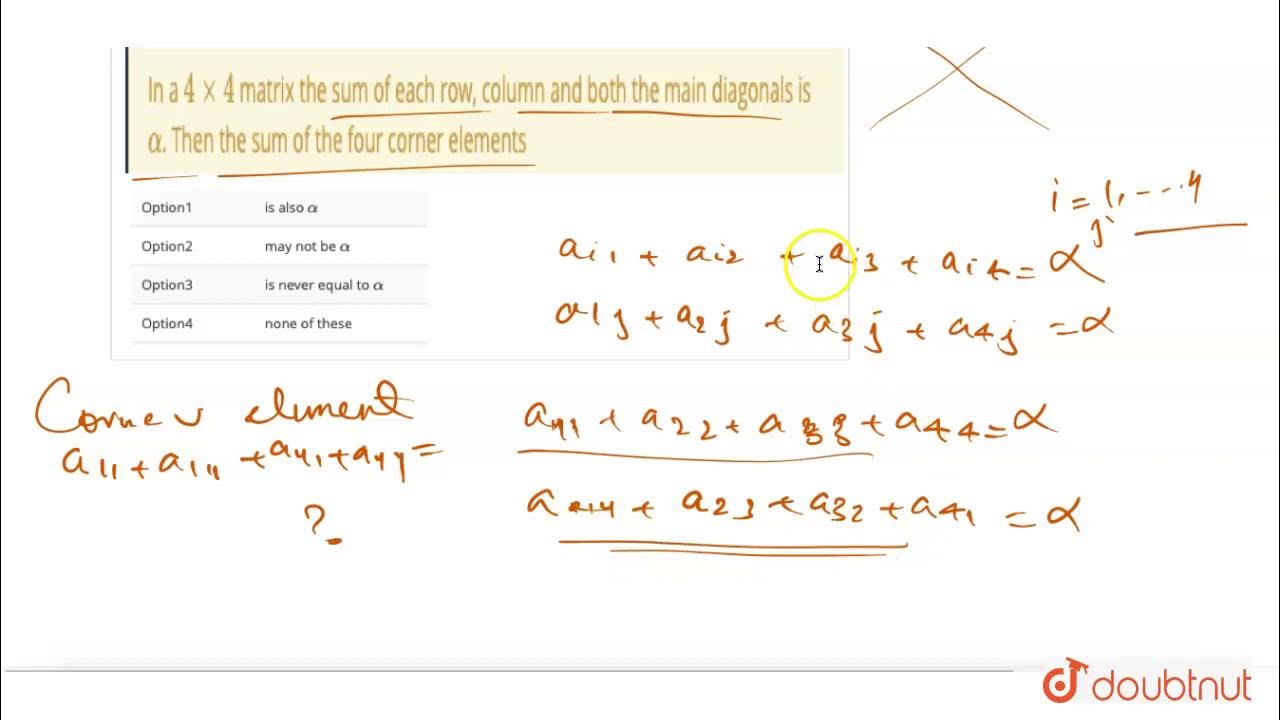 In a 4 × 4 matrix the sum of each row, column and both the main diagonals is
α. Then the sum of the four corner elements
Option1 is also α
Option2 may not be α
Option3 is never equal to α
Option4 none of these
i = 1, - - .. 4
j
ai1 + ai2 + ai3 + ai4 = α
a1j + a2j + a3j + a4j = α
Corner element
a11 + a14 + a41 + a44 =
?
a11 + a22 + a33 + a44 = α
a14 + a23 + a32 + a41 = α
doubtnut